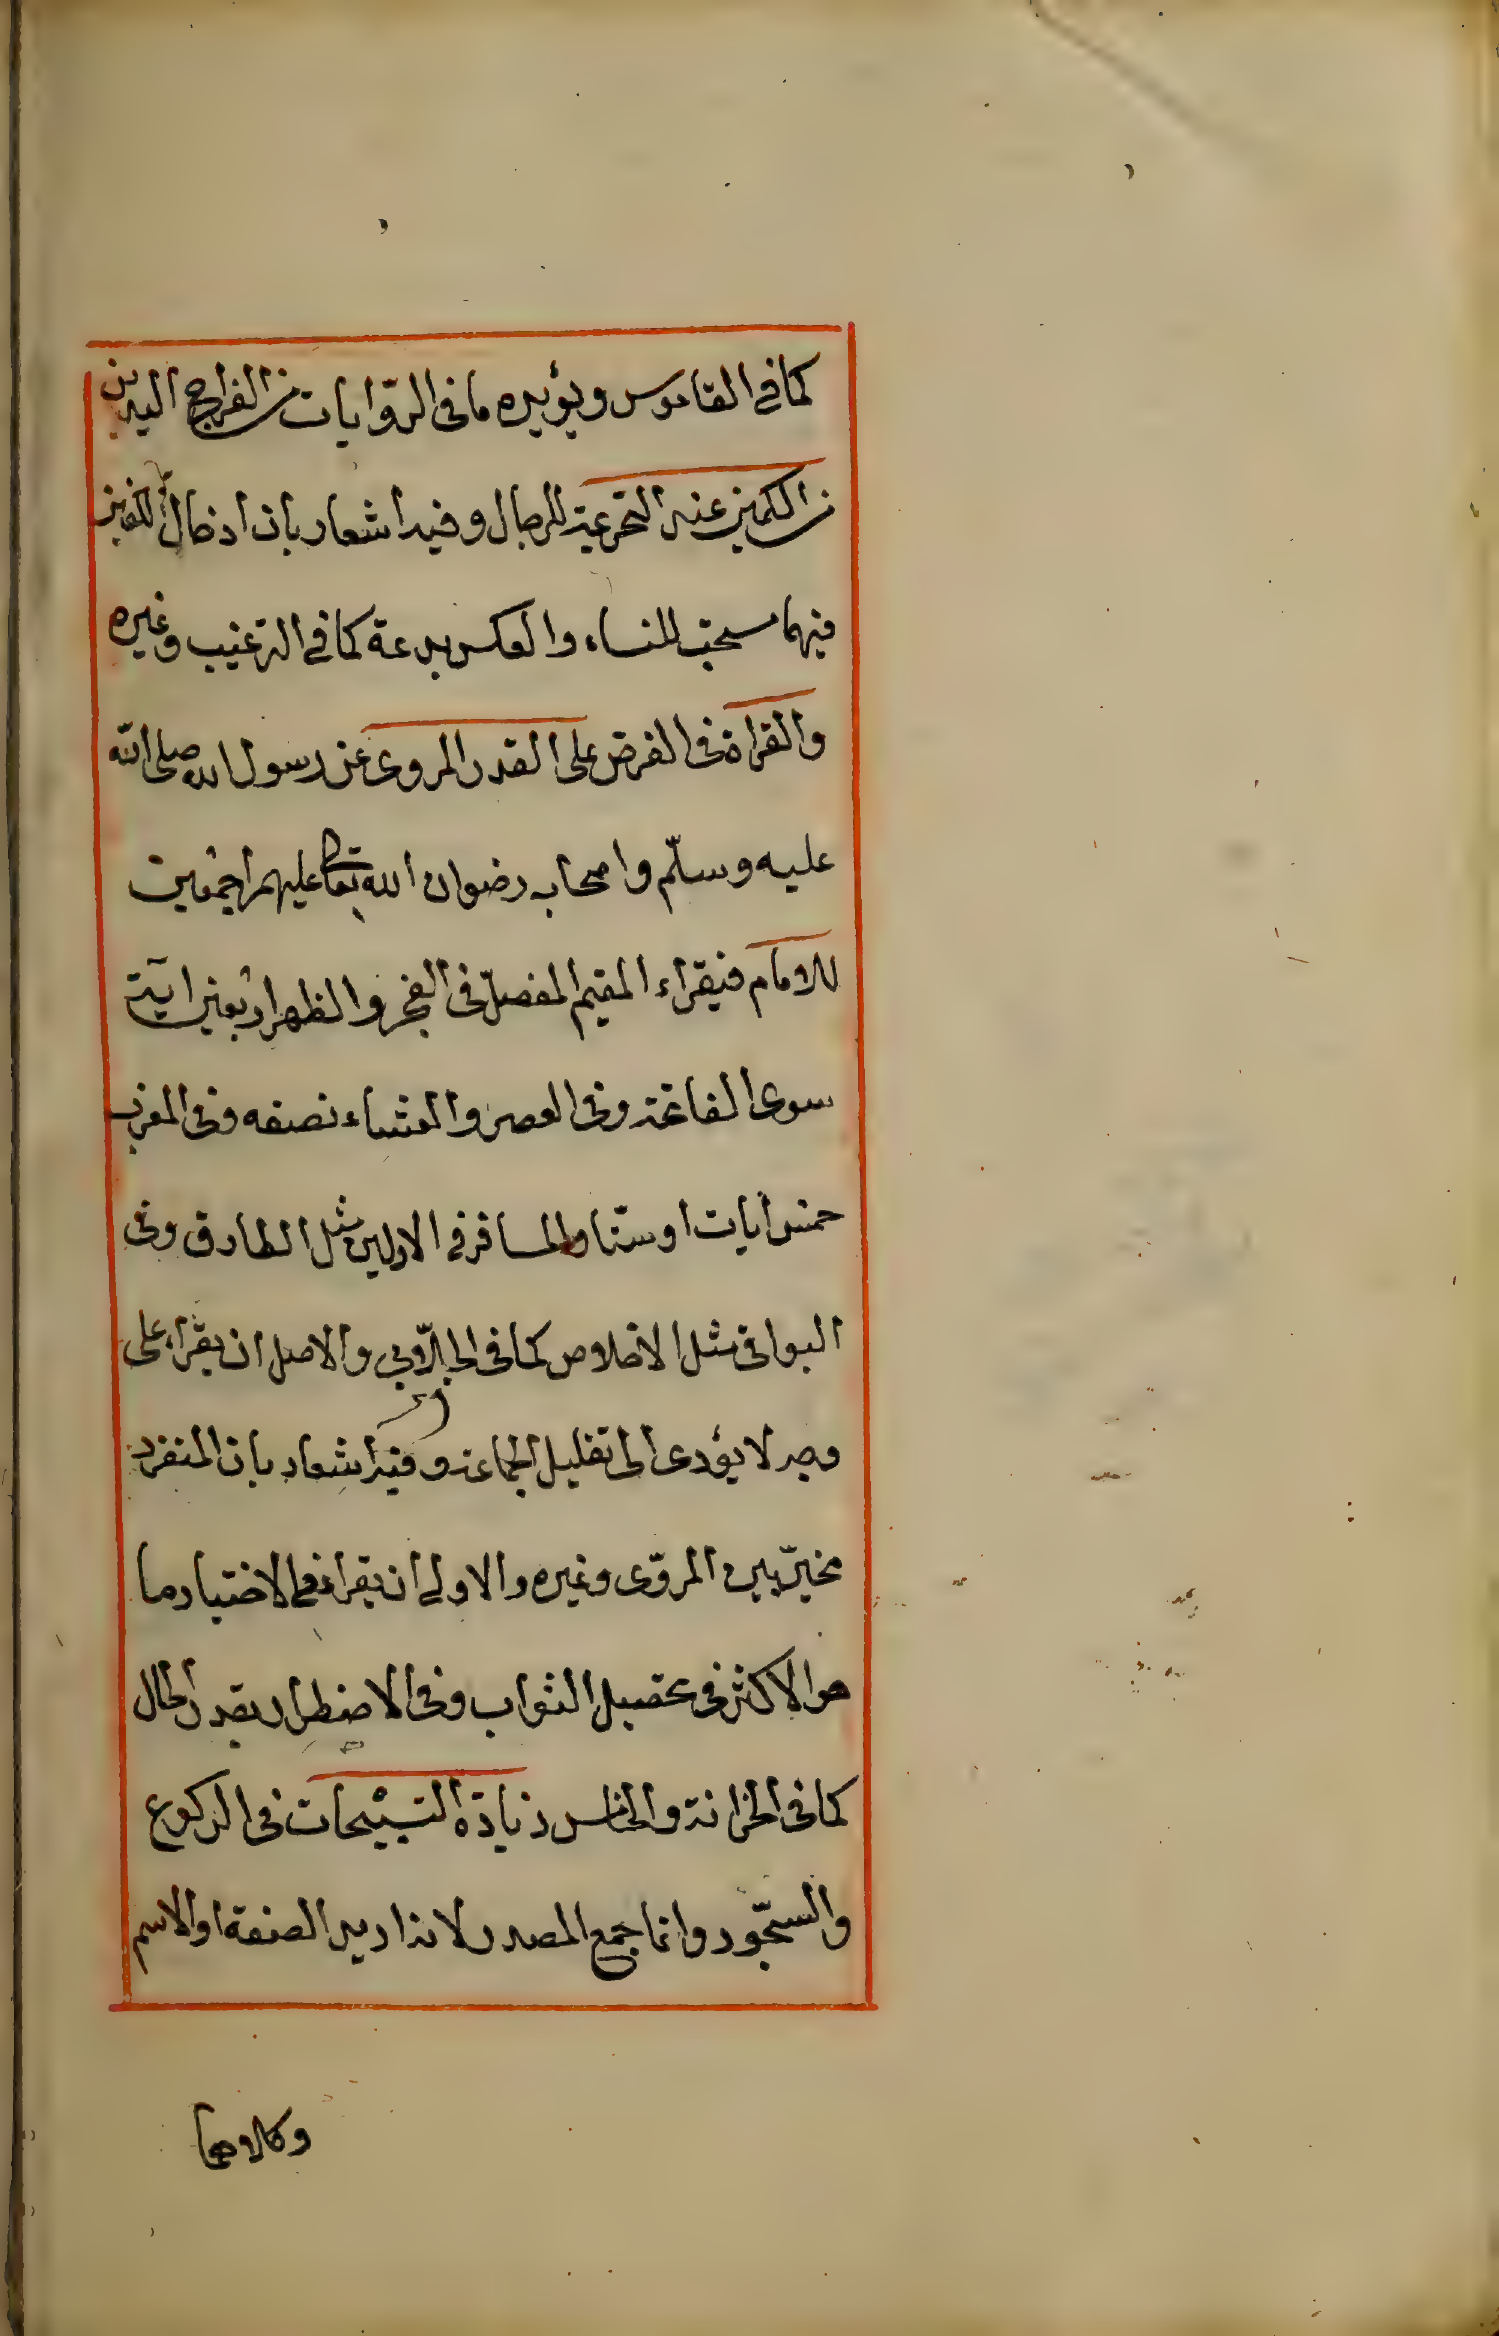 كما في القاموس ويؤيده ما في الروايات من الفراج اليدين
من الكمين عند التحريمة للرجال وفيه اشعار بان ادخال الكفين
فيهما مستحب للنساء والعكس بدعة كما في الترغيب وغيره
والقراة في الفرض على القدر المروى عن رسول الله صلى الله
عليه وسلّم واصحابه رضوان الله تعالى عليهم اجمعين
للامام فيقراء المقيم المفصل في الفجر والظهر اربعين اية
سوى الفاتحة وفى العصر والعشاء نصفه وفى المغرب
خمس ايات او ستا والمسافر في الاولين مثل الطارق وفى
البواقى مثل الاخلاص كما فى الجلّابي والاصل ان يقراء على
وجه لا يؤدى الى تقليل الجماعة وفيه اشعار بان المنفرد
مخيّر بين المروّى وغيره والاولى ان يقراء في الاختيار ما
هو الاكثر في تحصيل الثواب وفى الاضطرار بقدر الحال
كما فى الخزانة والخامس زيادة التسبيحات فى الركوع
والسجّود وانما جمع المصدر لانه اريد الصفة او الاسم
وكلاهما